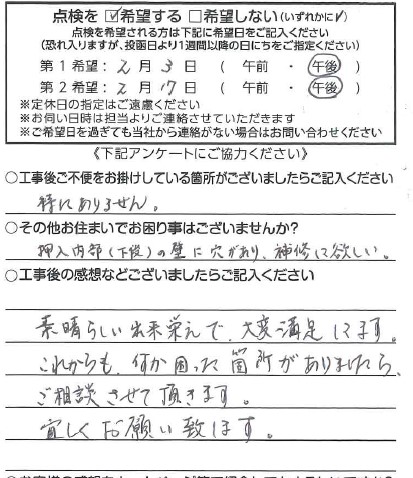 点検を ☑希望する □希望しない(いずれかに✓)
点検を希望される方は下記に希望日をご記入ください
(恐れ入りますが、投函日より1週間以降の日にちをご指定ください)
第1希望: 2月 3日 ( 午前 ・ 午後 )
第2希望: 2月 17日 ( 午前 ・ 午後 )
※定休日の指定はご遠慮ください
※お伺い日時は担当よりご連絡させていただきます
※ご希望日を過ぎても当社から連絡がない場合はお問い合わせください
《下記アンケートにご協力ください》
○工事後ご不便をお掛けしている箇所がございましたらご記入ください
特にありません。
○その他お住まいでお困り事はございませんか?
押入内部(下段)の壁に穴があり、補修して欲しい。
○工事後の感想などございましたらご記入ください
素晴らしい出来栄えで、大変満足してます。
これからも、何か困った箇所がありましたら、
ご相談させて頂きます。
宜しくお願い致します。